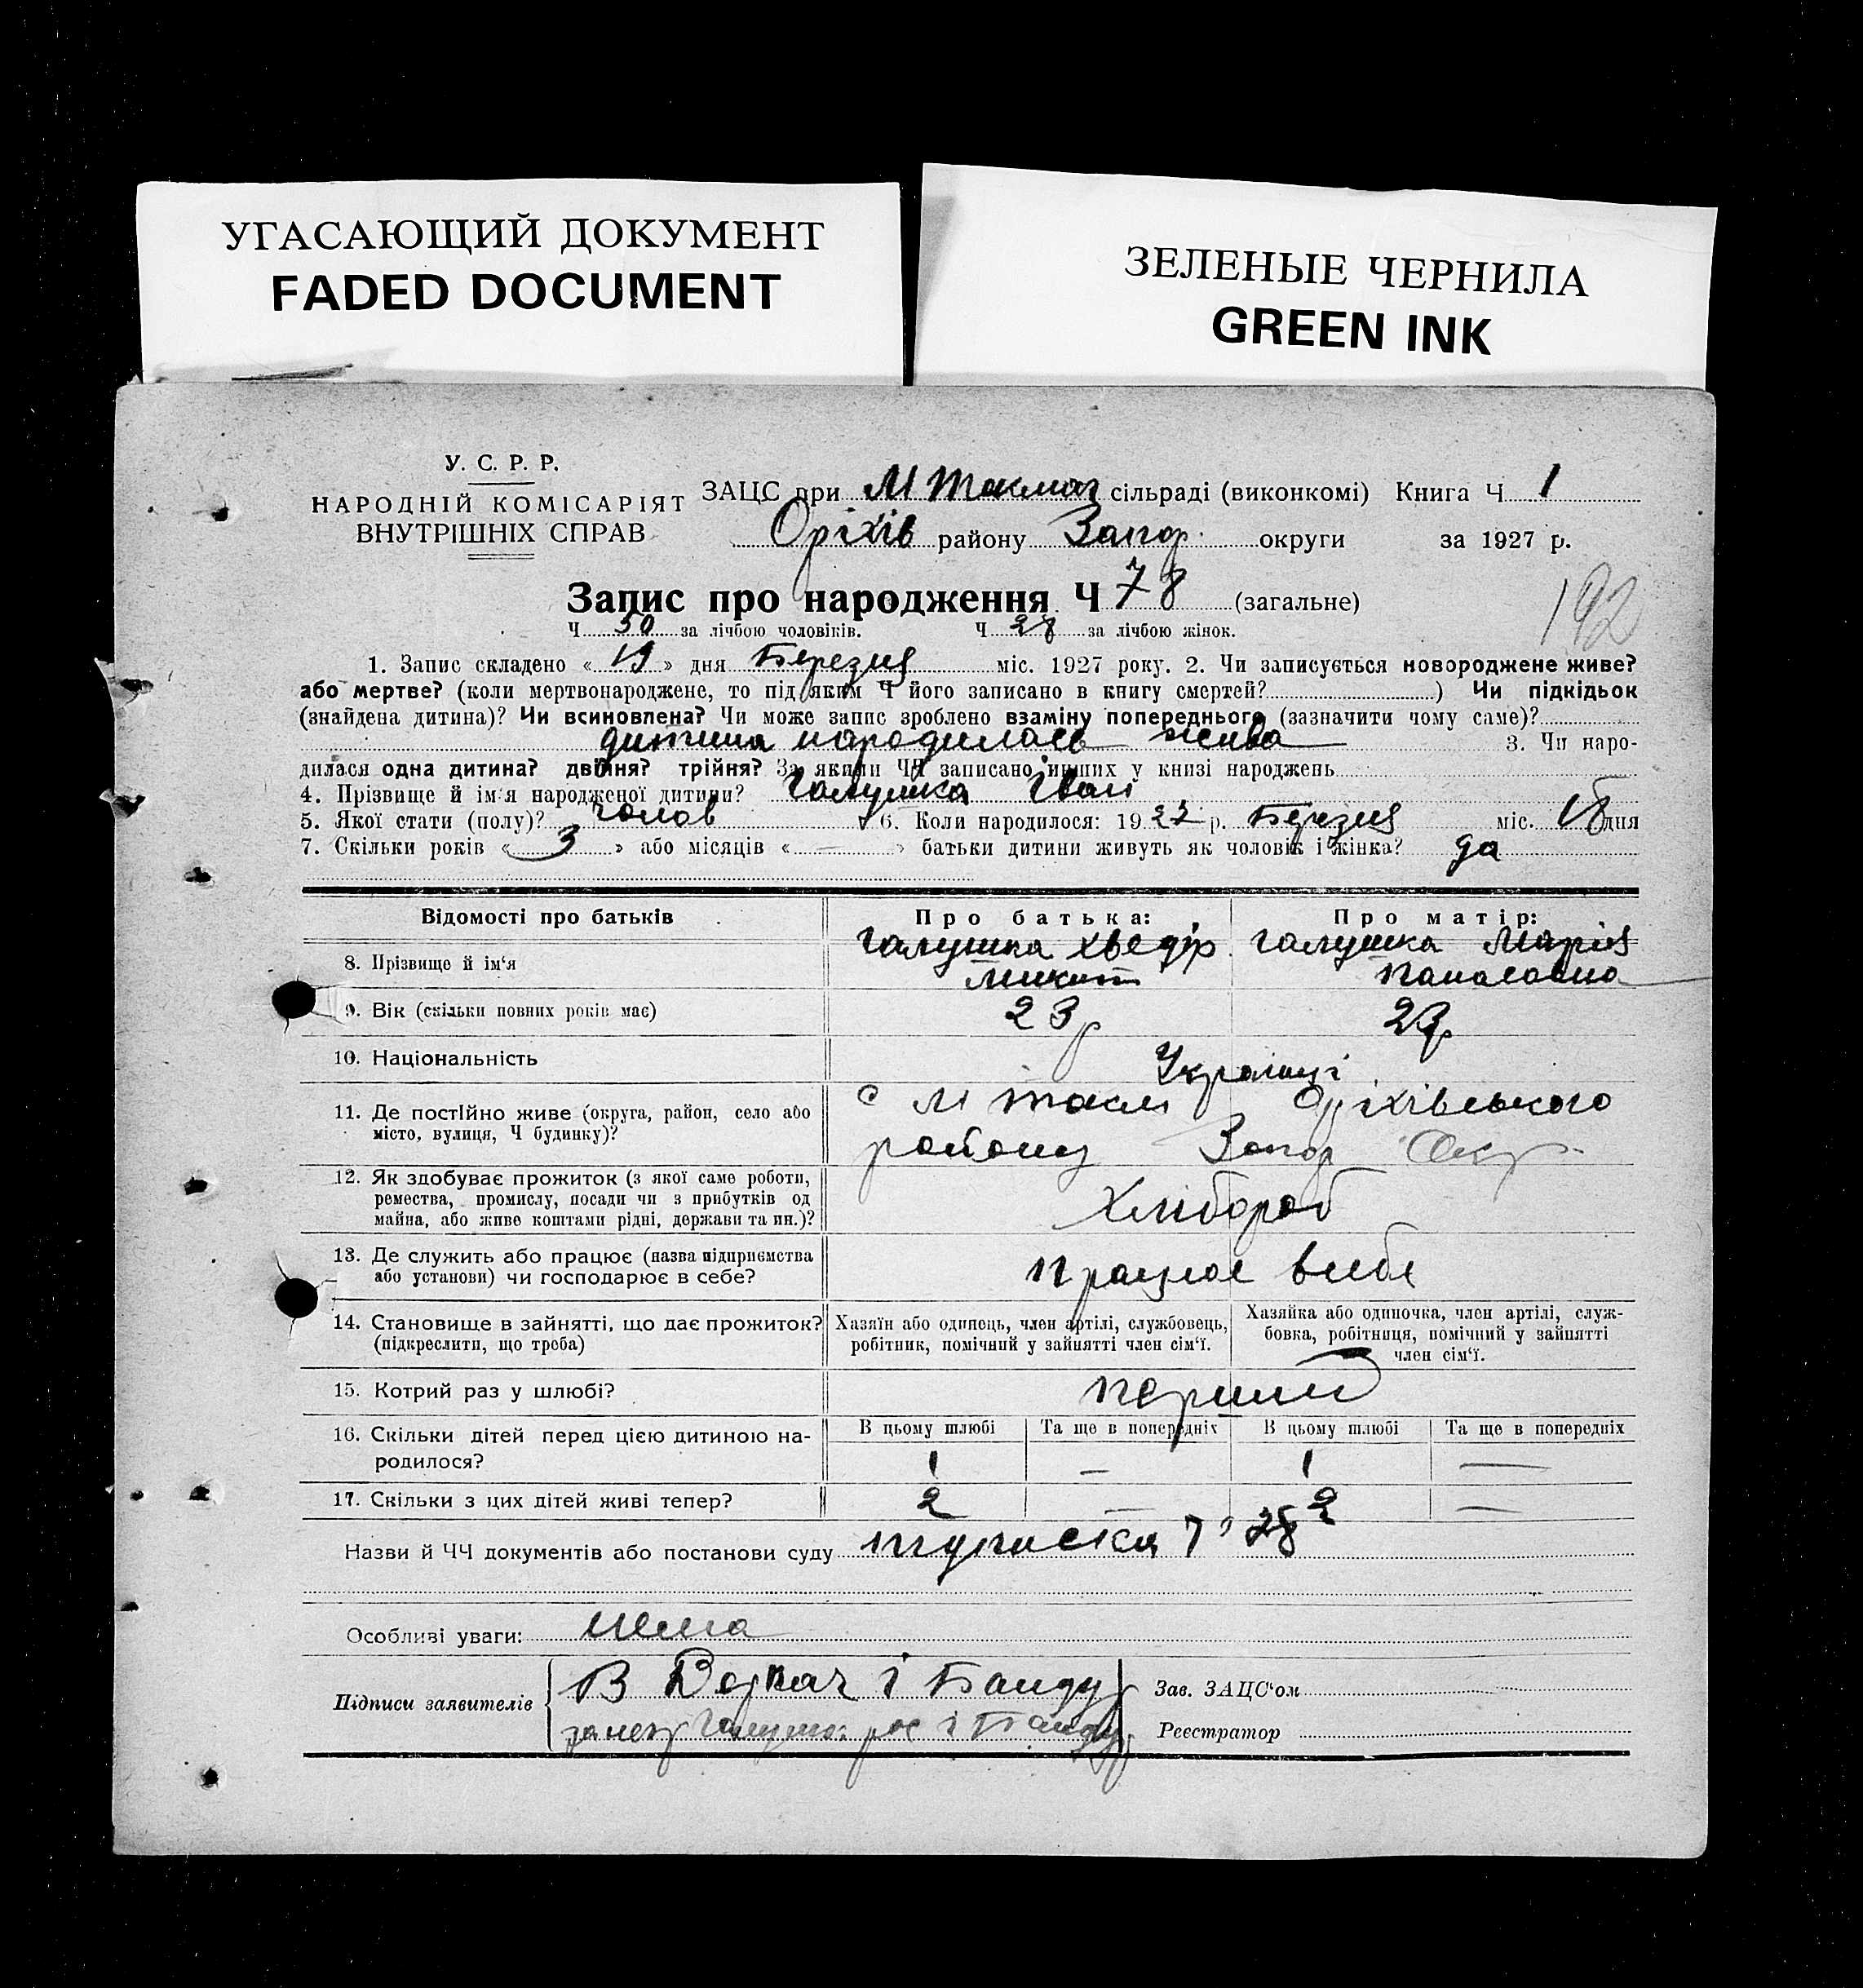 УГАСАЮЩИЙ ДОКУМЕНТ
FADED DOCUMENT
ЗЕЛЕНЫЕ ЧЕРНИЛА
GREEN INK
У. С. Р. Р.
НАРОДНІЙ КОМІСАРІЯТ
ВНУТРІШНІХ СПРАВ
ЗАЦС при М Токмач сільраді (виконкомі) Книга Ч 1
Оріхів району Запор. округи за 1927 р.
Запис про народження Ч 78 (загальне)
192
Ч 50 за лічбою чоловіків. Ч 28 за лічбою жінок.
1. Запис складено « 19 » дня Березня міс. 1927 року. 2. Чи записується новороджене живе?
або мертве? (коли мертвонароджене, то під яким Ч його записано в книгу смертей? ) Чи підкідьок
(знайдена дитина)? Чи всиновлена? Чи може запис зроблено взаміну попереднього (зазначити чому саме)?
дитина народилась жива 3. Чи наро-
дилася одна дитина? двійня? трійня? За якими ЧЧ записано инших у книзі народжень
4. Прізвище й ім'я народженої дитини? Галушка Іван
5. Якої стати (полу)? чолов 6. Коли народилося: 1927 р. Березня міс. 18 дня
7. Скільки років « 3 » або місяців « — » батьки дитини живуть як чоловік і жінка? да
Відомості про батьків Про батька: Про матір:
8. Прізвище й ім'я Галушка Хведір Галушка Марія
Микит Панасовна
9. Вік (скільки повних років має) 23 р 23 р
10. Національність Українці
11. Де постійно живе (округа, район, село або с М Токм Оріхівського
місто, вулиця, Ч будинку)? району Запор Окр
12. Як здобуває прожиток (з якої саме роботи,
ремества, промислу, посади чи з прибутків од Хлібороб
майна, або живе коштами рідні, держави та ин.)?
13. Де служить або працює (назва підприємства
або установи) чи господарює в себе? працює в себе
14. Становище в зайнятті, що дає прожиток? Хазяїн або одинець, член артілі, службовець, Хазяйка або одиночка, член артілі, служ-
(підкреслити, що треба) робітник, помічний у зайнятті член сім'ї. бовка, робітниця, помічний у зайнятті
член сім'ї.
15. Котрий раз у шлюбі? перший
16. Скільки дітей перед цією дитиною на- В цьому шлюбі Та ще в попередніх В цьому шлюбі Та ще в попередніх
родилося? 1 — 1 —
17. Скільки з цих дітей живі тепер? 2 — 2 —
Назви й ЧЧ документів або постанови суду 28
Особливі уваги: нема
Підписи заявителів В Деркач і Бандур Зав. ЗАЦС'ом
Галушк. рос і Бандур Реєстратор